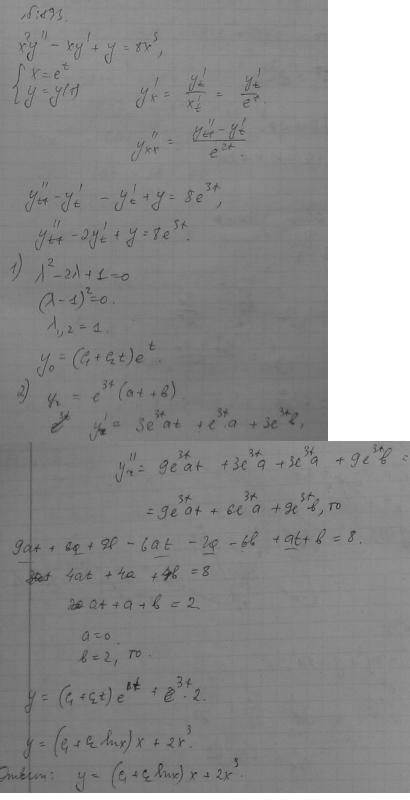 x²y'' - xy' + y = 8x³,
{ x = eᵗ
y = y(t)
y'ₓ = y'ₜ / x'ₜ = y'ₜ / eᵗ.
y''ₓₓ = (y''ₜₜ - y'ₜ) / e²ᵗ.
y''ₜₜ - y'ₜ - y'ₜ + y = 8e³ᵗ,
y''ₜₜ - 2y'ₜ + y = 8e³ᵗ.
1) λ² - 2λ + 1 = 0
(λ - 1)² = 0.
λ₁,₂ = 1.
y₀ = (C₁ + C₂t)eᵗ
2) yᵣ = e³ᵗ(at + b)
y'ᵣ = 3e³ᵗat + e³ᵗa + 3e³ᵗb,
y''ᵣ = 9e³ᵗat + 3e³ᵗa + 3e³ᵗa + 9e³ᵗb =
= 9e³ᵗat + 6e³ᵗa + 9e³ᵗb, то
9at + 6a + 9b - 6at - 2a - 6b + at + b = 8.
4at + 4a + 4b = 8
at + a + b = 2
a = 0.
b = 2, то.
y = (C₁ + C₂t)eᵗ + e³ᵗ·2.
y = (C₁ + C₂ lnx)x + 2x³.
Ответ: y = (C₁ + C₂ lnx)x + 2x³.